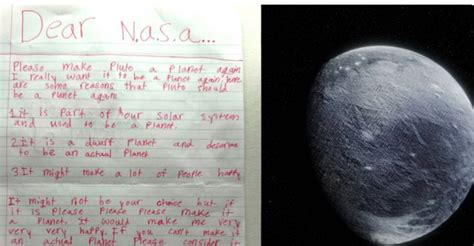 Dear N.a.s.a...
Please make Pluto a Planet again
I really want it to be a Planet again, here
are some reasons that Pluto should
be a Planet again
1. it is part of our Solar System
and used to be a Planet.
2. It is a dwarf Planet and deserve
to be an actual Planet
3. It might make a lot of People happy
It might not be your choice but if
it is Please Please Please make it
a Planet. It would make me very
very very happy. If you can't make it
an actual Planet Please consider it